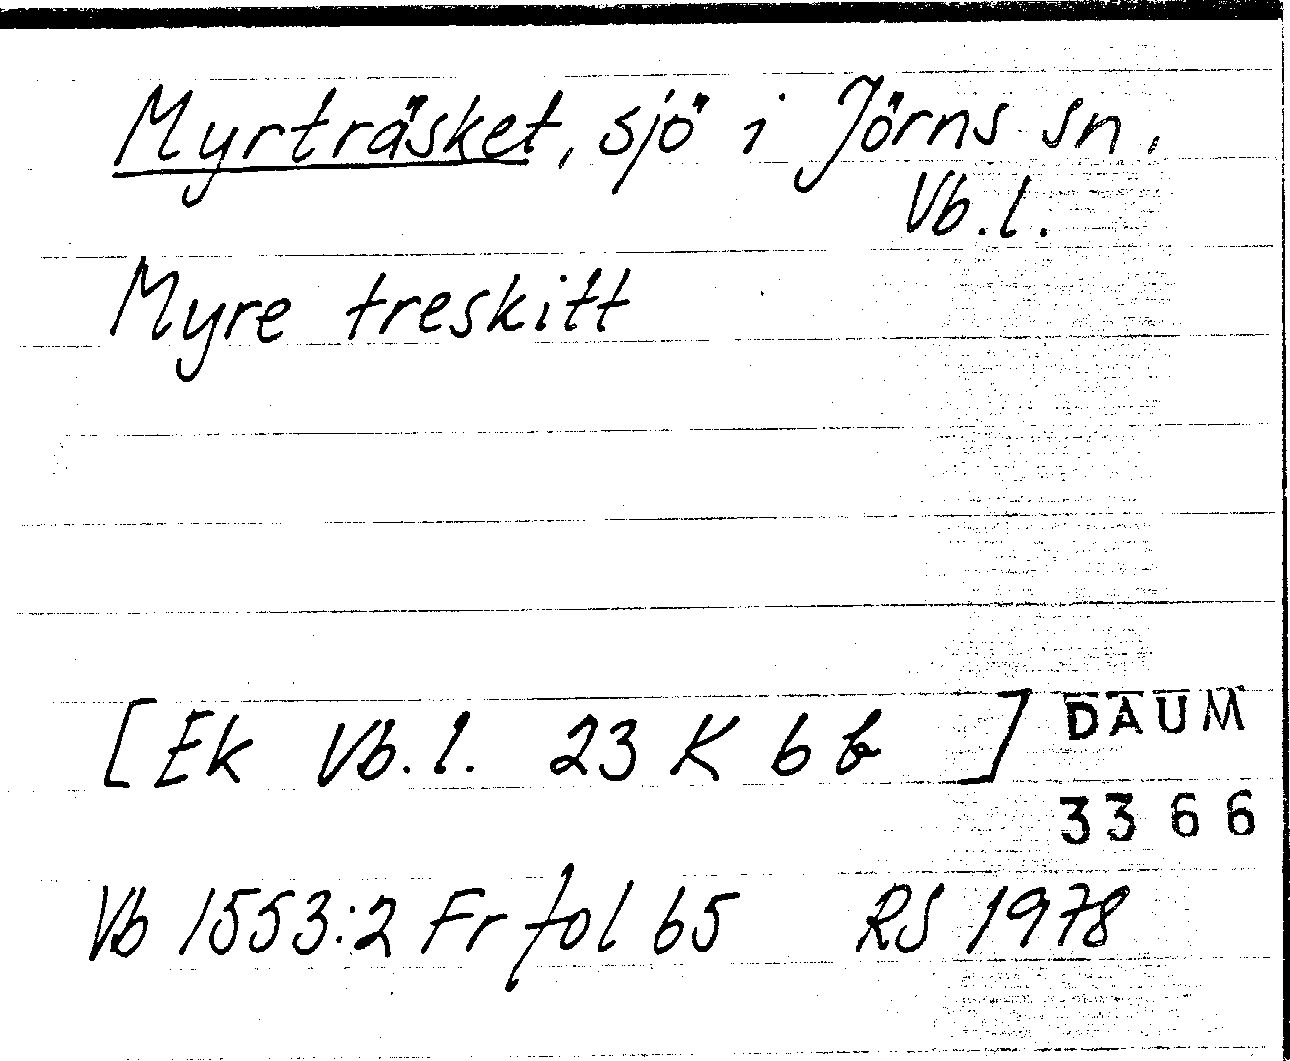 Myrträsket, sjö i Jörns sn.
Vb.l.
Myre treskitt
[Ek Vb.l. 23 K 6 b ]
DAUM
3366
Vb 1553:2 Fr fol 65 RS 1978